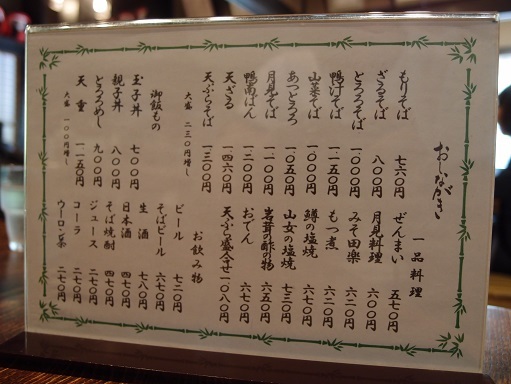 おしながき
もりそば 七六〇円
ざるそば 八〇〇円
とろろそば 一〇〇〇円
鴨汁そば 一一五〇円
山菜そば 一〇〇〇円
あつとろろ 一〇五〇円
月見そば 一一〇〇円
鴨南ばん 一二〇〇円
天ざる 一四六〇円
天ぷらそば 一三〇〇円
大盛 二三〇円増し
御飯もの
玉子丼 七〇〇円
親子丼 八〇〇円
とろろめし 九〇〇円
天重 一一五〇円
大盛 一〇〇円増し
一品料理
ぜんまい 五七〇円
月見料理 六〇〇円
みそ田楽 六二〇円
もつ煮 六二〇円
鱒の塩焼 六七〇円
山女の塩焼 七三〇円
岩茸の酢の物 六五〇円
おでん 六七〇円
天ぷら盛合せ 一〇八〇円
お飲み物
ビール 七二〇円
そばビール 六七〇円
生酒 七八〇円
日本酒 四七〇円
そば焼酎 四七〇円
ジュース 二七〇円
コーラ 二七〇円
ウーロン茶 二七〇円